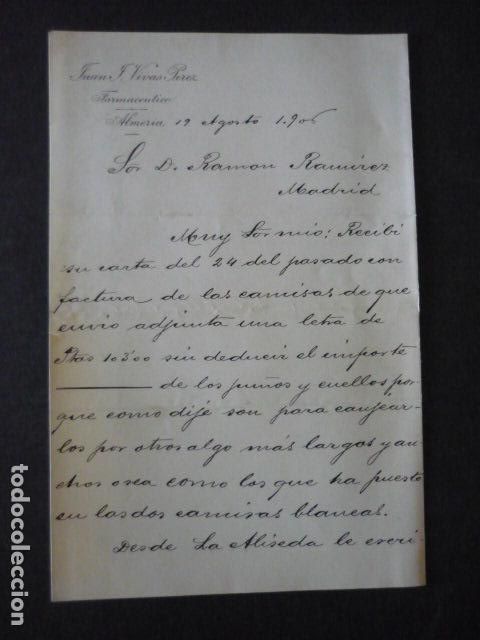 Juan J. Vivas Perez
Farmaceutico
Almeria, 19 Agosto 1.906
Sor D. Ramon Ramirez
Madrid
Muy Sor mio: Recibi
su carta del 24 del pasado con
factura de las camisas de que
envio adjunta una letra de
Ptas 103'00 sin deducir el importe
de los puños y cuellos por
que como dije son para canjear-
los por otros algo más largos y an-
chos osea como los que ha puesto
en las dos camisas blancas.
Desde La Aliseda le escri-
todocoleccion.net